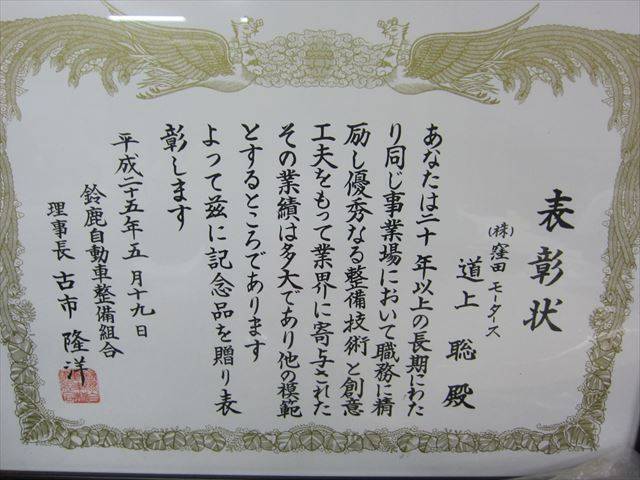 表彰状
(株)窪田モータース
道上聡殿
あなたは二十年以上の長期にわた
り同じ事業場において職務に精
励し優秀なる整備技術と創意
工夫をもって業界に寄与された
その業績は多大であり他の模範
とするところであります
よって茲に記念品を贈り表
彰します
平成二十五年五月十九日
鈴鹿自動車整備組合
理事長 古市隆洋